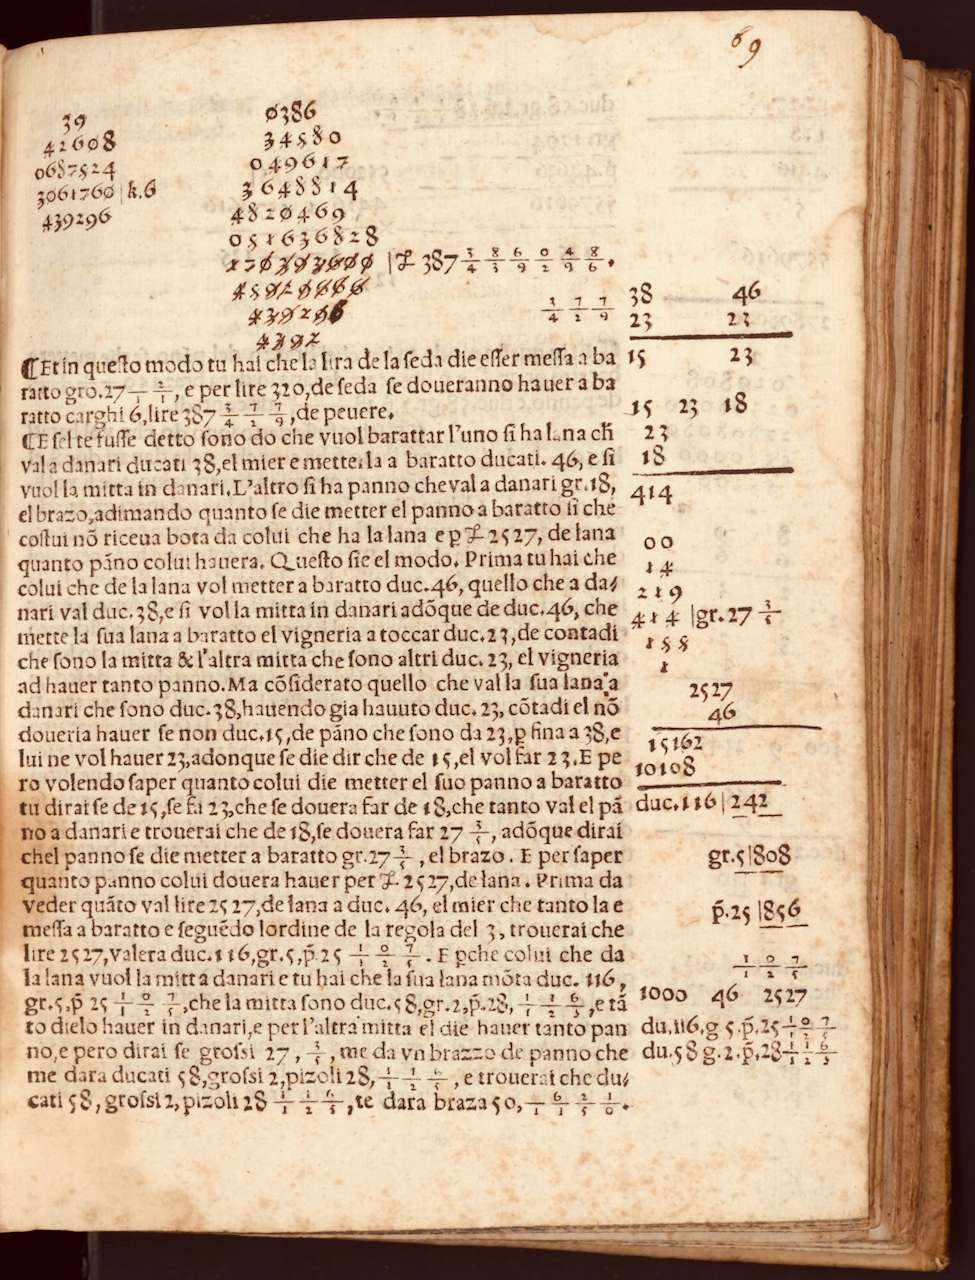 69
39
42608
0687524
3061760 | k.6
439296
0386
34580
049617
3648814
4820469
051636828
|£ 387 3/4 8/3 6/9 0/2 4/9 8/6.
3/4 7/2 7/9
¶Et in questo modo tu hai che la lira de la seda die esser messa a ba
ratto gro.27 — 2/1, e per lire 320, de seda se doueranno hauer a ba
ratto carghi 6, lire 387 3/4 7/2 7/9, de peuere.
¶E sel te fusse detto sono do che vuol barattar l'uno si ha lana ch̄
val a danari ducati 38, el mier e mettela a baratto ducati. 46, e si
vuol la mitta in danari. L'altro si ha panno che val a danari gr.18,
el brazo, adimando quanto se die metter el panno a baratto si che
costui nō riceua bota da colui che ha la lana e p̱ £ 2527, de lana
quanto pāno colui hauera. Questo sie el modo. Prima tu hai che
colui che de la lana vol metter a baratto duc.46, quello che a da/
nari val duc.38, e si vol la mitta in danari adōque de duc.46, che
mette la sua lana a baratto el vigneria a toccar duc.23, de contadi
che sono la mitta & l'altra mitta che sono altri duc.23, el vigneria
ad hauer tanto panno. Ma cōsiderato quello che val la sua lana a
danari che sono duc.38, hauendo gia hauuto duc.23, cōtadi el nō
doueria hauer se non duc.15, de pāno che sono da 23, p̱ fina a 38, e
lui ne vol hauer 23, adonque se die dir che de 15, el vol far 23. E pe
ro volendo saper quanto colui die metter el suo panno a baratto
tu dirai se de 15, se fa 23, che se douera far de 18, che tanto val el pā
no a danari e trouerai che de 18, se douera far 27 3/5, adōque dirai
chel panno se die metter a baratto gr.27 3/5, el brazo. E per saper
quanto panno colui douera hauer per £ 2527, de lana. Prima da
veder quāto val lire 2527, de lana a duc. 46, el mier che tanto la e
messa a baratto e seguēdo lordine de la regola del 3, trouerai che
lire 2527, valera duc.116, gr.5, p̄.25 1/1 0/2 7/5. E p̱che colui che da
la lana vuol la mitta danari e tu hai che la sua lana mōta duc. 116,
gr.5, p̄ 25 1/1 0/2 7/5, che la mitta sono duc.58, gr.2, p̄.28, 1/1 1/2 6/5, e tā
to dielo hauer in danari, e per l'altra mitta el die hauer tanto pan
no, e pero dirai se grossi 27, 3/5, me da vn brazzo de panno che
me dara ducati 58, grossi 2, pizoli 28, 1/1 1/2 6/5, e trouerai che du/
cati 58, grossi 2, pizoli 28 1/1 1/2 6/5, te dara braza 50, —/1 6/1 2/5 1/0.
38 46
23 23
15 23
15 23 18
23
18
414
00
14
219
414 |gr.27 3/5
155
1
2527
46
15162
10108
duc.116|242
gr.5|808
p̄.25|856
1/1 0/2 7/5
1000 46 2527
du.116.g 5.p̄.25 1/1 0/2 7/5
du.58 g.2.p̄,28 1/1 1/2 6/5